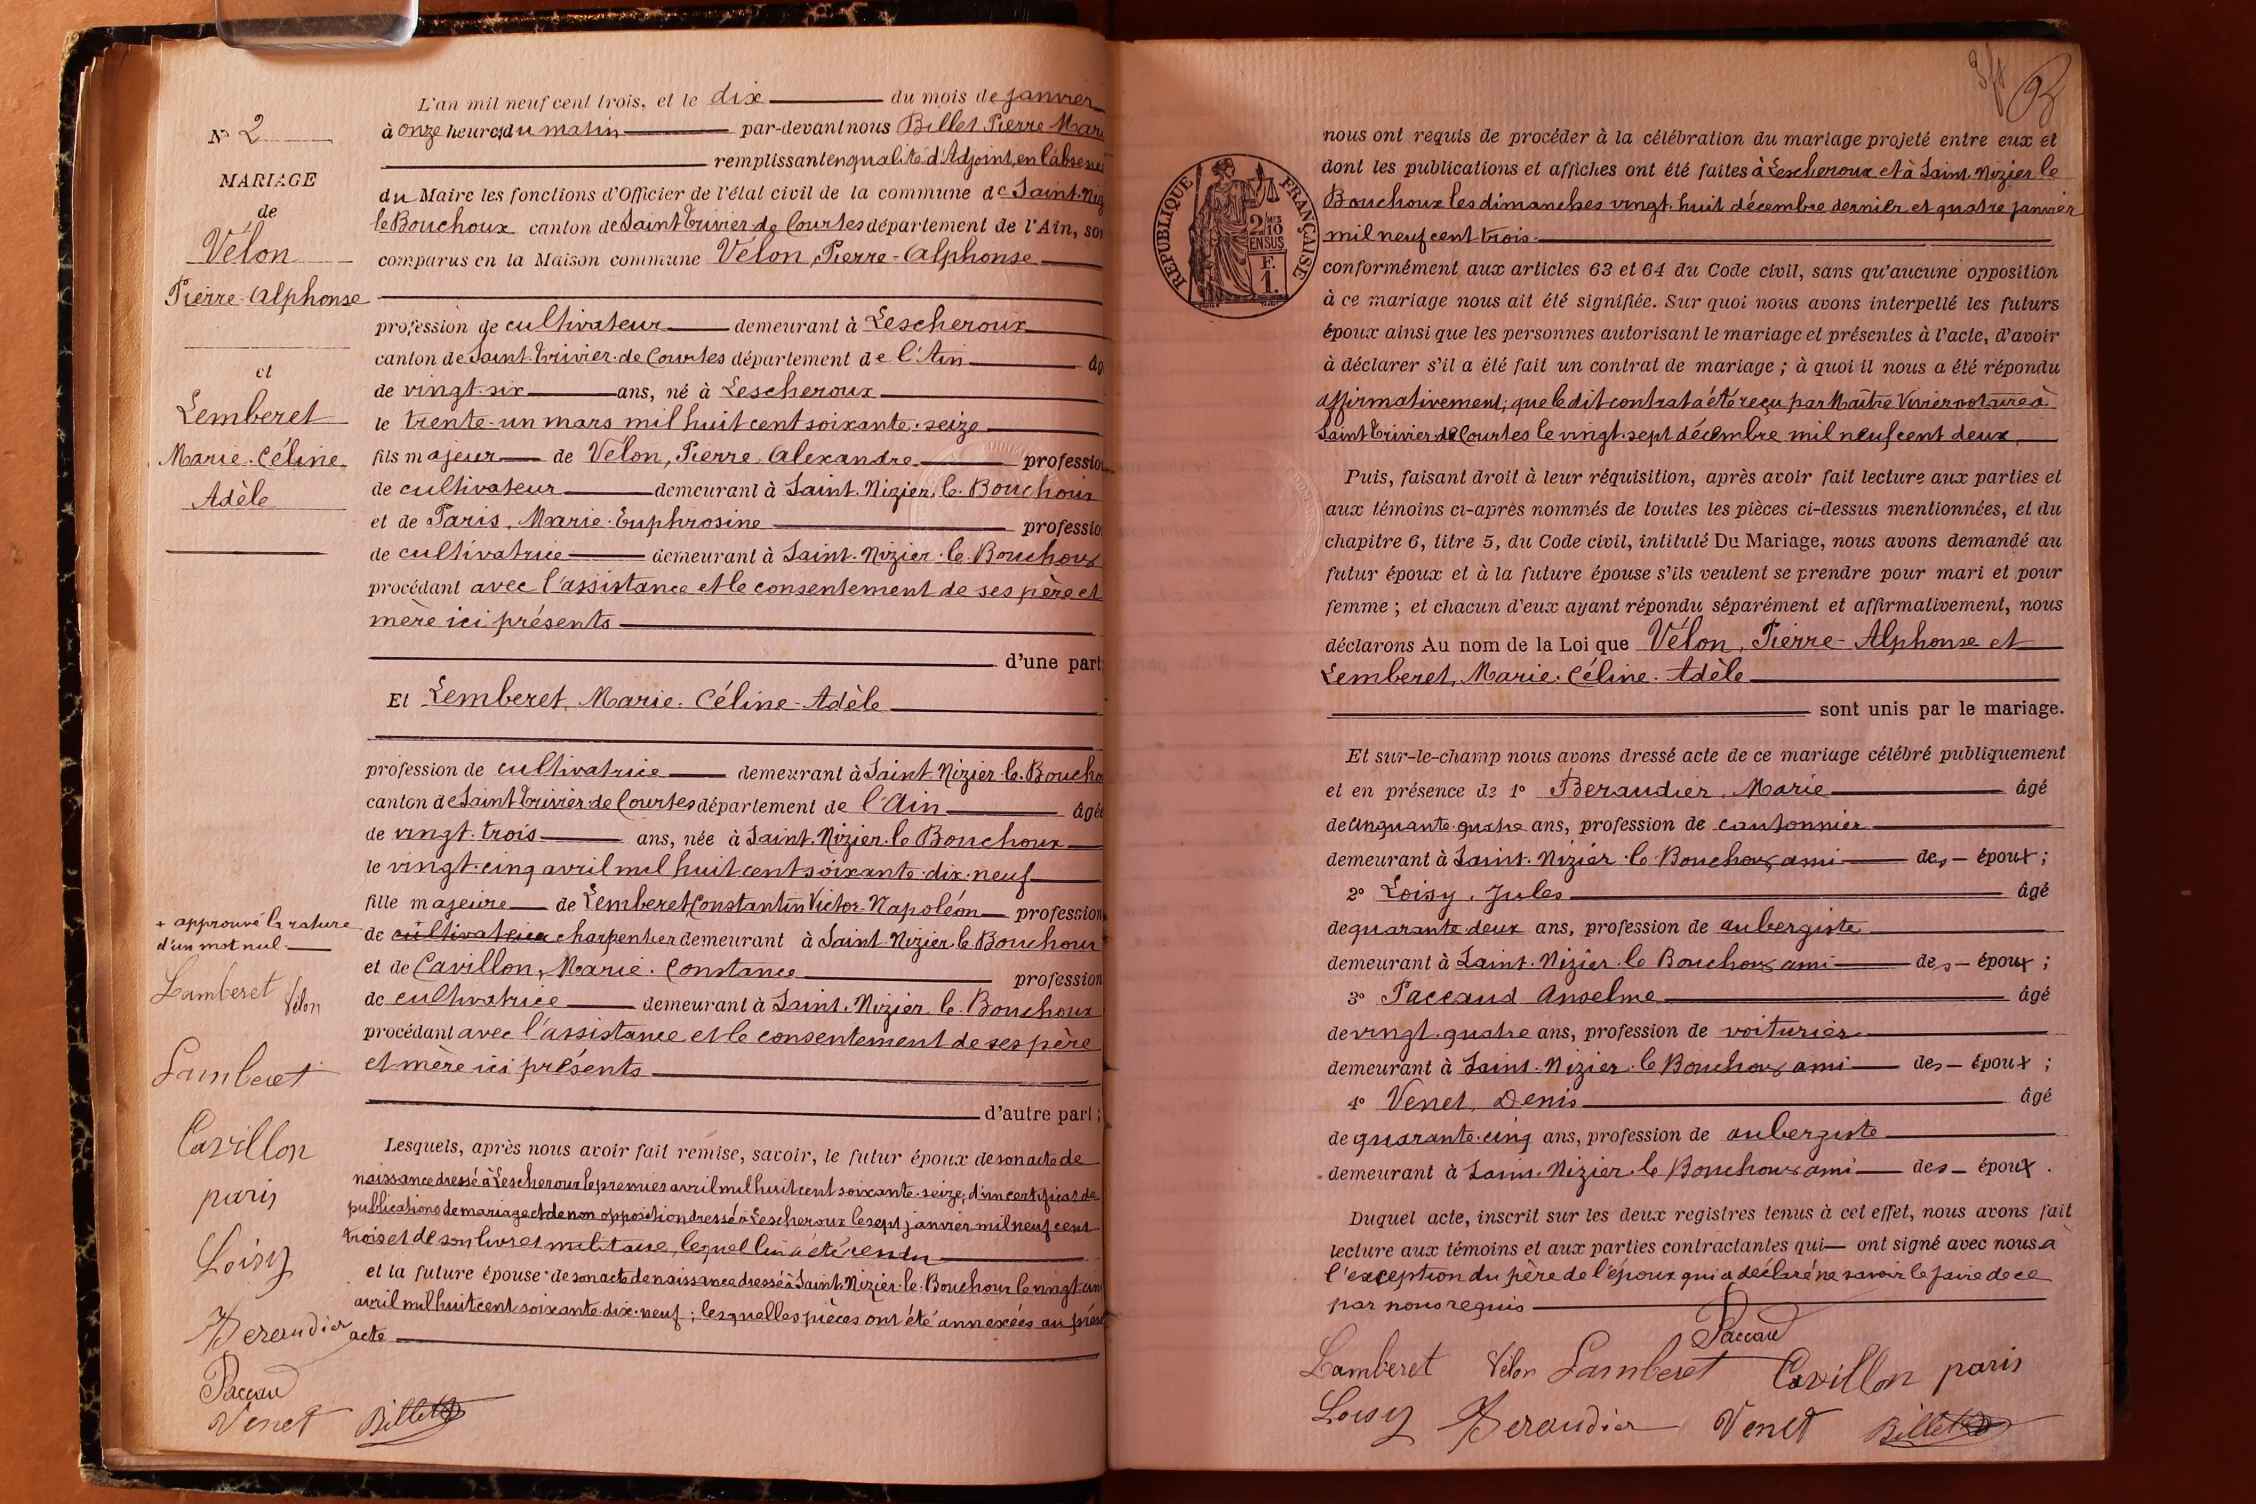 N° 2
MARIAGE
de
Vélon
Pierre-Alphonse
et
Lemberet
Marie. Céline.
Adèle
+ approuvé la rature
d'un mot nul
Lamberet
Vélon
Lamberet
Cavillon
paris
Loisy
Beraudier
Paccaud
Venet
Billet
L'an mil neuf cent trois, et le dix du mois de janvier
à onze heures du matin par-devant nous Billet Pierre Mari
remplissant en qualité d'Adjoint, en l'absence
du Maire les fonctions d'Officier de l'état civil de la commune de Saint-Niz
le Bouchoux canton de Saint Trivier de Courtes département de l'Ain, son
comparus en la Maison commune Vélon, Pierre-Alphonse
profession de cultivateur demeurant à Lescheroux
canton de Saint-Trivier-de Courtes département de l'Ain âg
de vingt-six ans, né à Lescheroux
le trente-un mars mil huit cent soixante-seize
fils majeur de Vélon, Pierre Alexandre profession
de cultivateur demeurant à Saint. Nizier. le. Bouchoux
et de Paris, Marie. Euphrosine profession
de cultivatrice demeurant à Saint. Nizier. le. Bouchoux
procédant avec l'assistance et le consentement de ses père et
mère ici présents
d'une part
Et Lemberet, Marie. Céline-Adèle
profession de cultivatrice demeurant à Saint Nizier le. Boucho
canton de Saint Trivier de Courtes département de l'Ain âgée
de vingt. trois ans, née à Saint. Nizier. le Bouchoux
le vingt. cinq avril mil huit cent soixante. dix. neuf
fille majeure de Lemberet, Constantin Victor-Napoléon profession
de cultivatrice charpentier demeurant à Saint-Nizier le Bouchoux
et de Cavillon, Marie. Constance profession
de cultivatrice demeurant à Saint. Nizier. le. Bouchoux
procédant avec l'assistance et le consentement de ses père
et mère ici présents
d'autre part ;
Lesquels, après nous avoir fait remise, savoir, le futur époux de son acte de
naissance dressé à Lescheroux le premier avril mil huit cent soixante. seize, d'un certificat de
publications de mariage et de non opposition dressé à Lescheroux le sept janvier mil neuf cent
trois et de son livret militaire, lequel lui a été rendu
et la future épouse de son acte de naissance dressé à Saint. Nizier. le. Bouchoux le vingt cin
avril mil huit cent soixante. dix. neuf ; lesquelles pièces ont été annexées au prés
acte
REPUBLIQUE FRANÇAISE
2/10
EN SUS
F.
1.
nous ont requis de procéder à la célébration du mariage projeté entre eux et
dont les publications et affiches ont été faites à Lescheroux et à Saint Nizier le
Bouchoux les dimanches vingt. huit décembre dernier et quatre janvier
mil neuf cent trois.
conformément aux articles 63 et 64 du Code civil, sans qu'aucune opposition
à ce mariage nous ait été signifiée. Sur quoi nous avons interpellé les futurs
époux ainsi que les personnes autorisant le mariage et présentes à l'acte, d'avoir
à déclarer s'il a été fait un contrat de mariage ; à quoi il nous a été répondu
affirmativement ; que le dit contrat a été reçu par Maître Vivier notaire à
Saint Trivier de Courtes le vingt. sept décembre mil neuf cent deux.
Puis, faisant droit à leur réquisition, après avoir fait lecture aux parties et
aux témoins ci-après nommés de toutes les pièces ci-dessus mentionnées, et du
chapitre 6, titre 5, du Code civil, intitulé Du Mariage, nous avons demandé au
futur époux et à la future épouse s'ils veulent se prendre pour mari et pour
femme ; et chacun d'eux ayant répondu séparément et affirmativement, nous
déclarons Au nom de la Loi que Vélon, Pierre-Alphonse et
Lemberet, Marie. Céline. Adèle
sont unis par le mariage.
Et sur-le-champ nous avons dressé acte de ce mariage célébré publiquement
et en présence de 1° Beraudier, Marie âgé
de cinquante-quatre ans, profession de cantonnier
demeurant à Saint. Nizier. le. Bouchoux, ami des époux ;
2° Loisy, Jules âgé
de quarante deux ans, profession de aubergiste
demeurant à Saint. Nizier. le Bouchoux ami des époux ;
3° Paccaud Anselme âgé
de vingt. quatre ans, profession de voiturier
demeurant à Saint. Nizier. le Bouchoux ami des époux ;
4° Venet, Denis âgé
de quarante. cinq ans, profession de aubergiste
demeurant à Saint. Nizier. le Bouchoux ami des époux.
Duquel acte, inscrit sur les deux registres tenus à cet effet, nous avons fait
lecture aux témoins et aux parties contractantes qui ont signé avec nous à
l'exception du père de l'époux qui a déclaré ne savoir le faire de ce
par nous requis
Paccaud
Lamberet Vélon Lamberet Cavillon paris
Loisy Beraudier Venet Billet